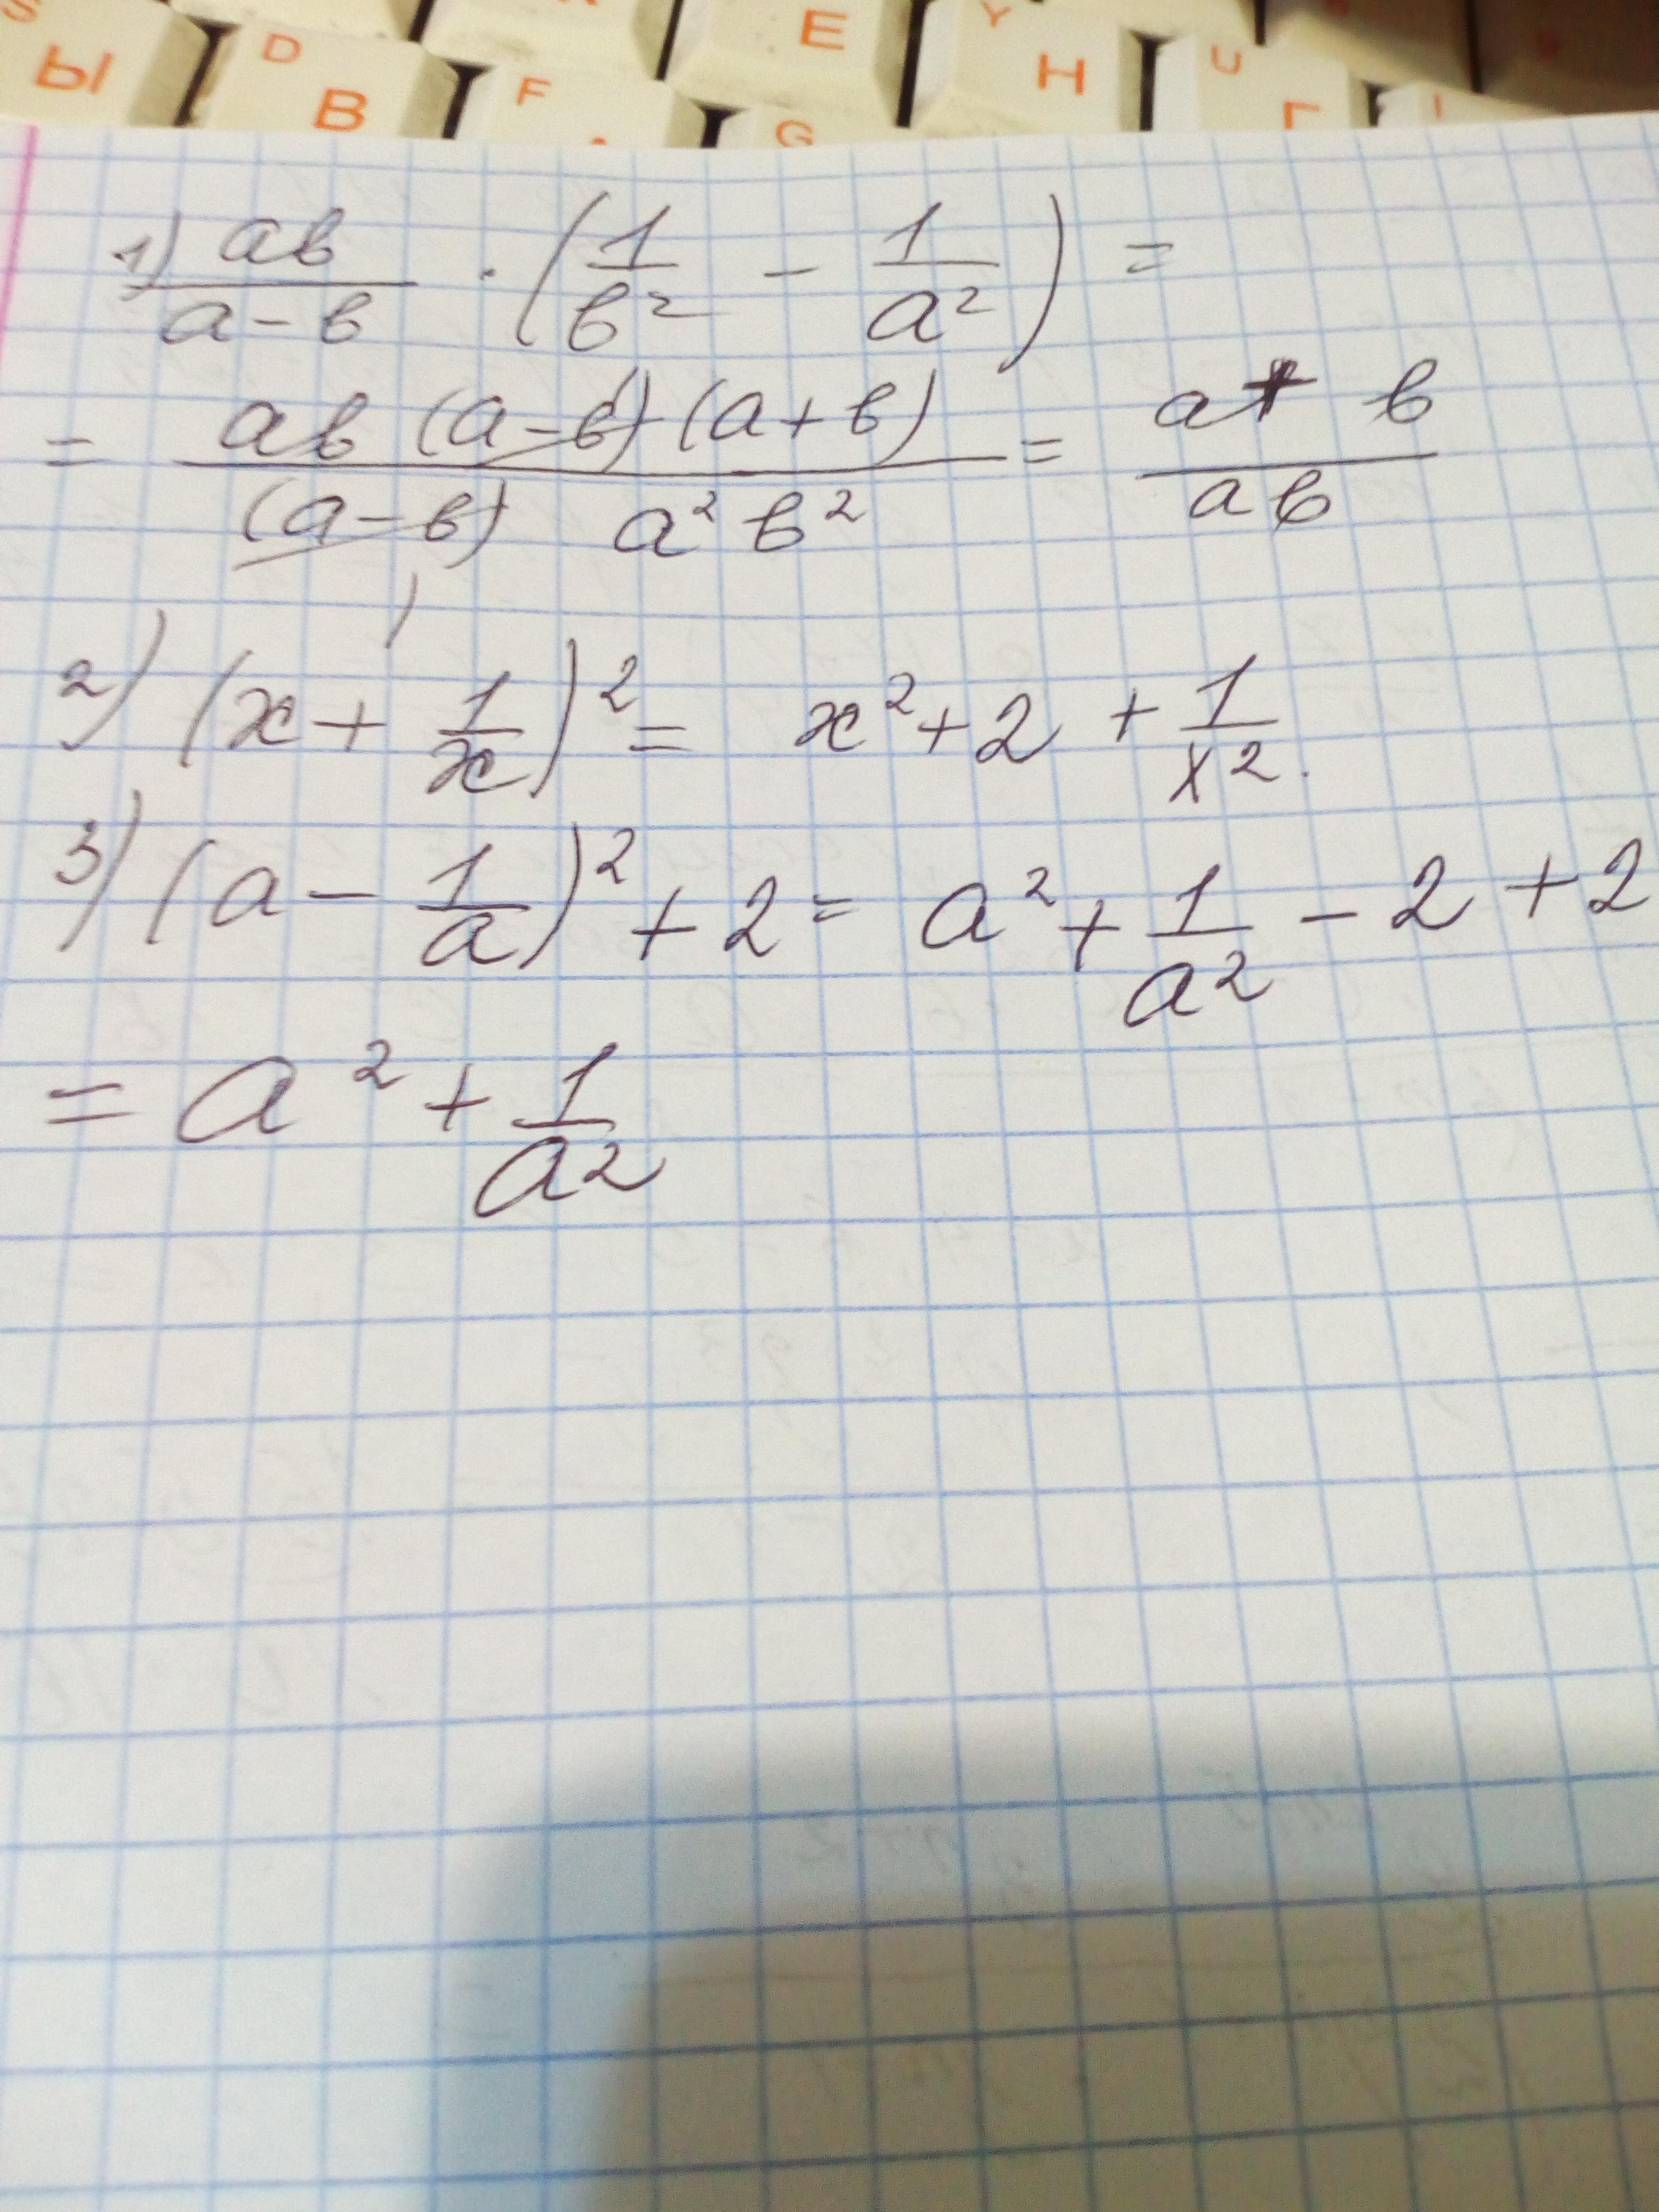 S D E Y U
Ы В F Н Г I
G
1) ab/(a-b) · (1/b² - 1/a²) =
= ab(a-b)(a+b)/((a-b) a²b²) = (a+b)/(ab)
2) (x + 1/x)² = x² + 2 + 1/x².
3) (a - 1/a)² + 2 = a² + 1/a² - 2 + 2
= a² + 1/a²